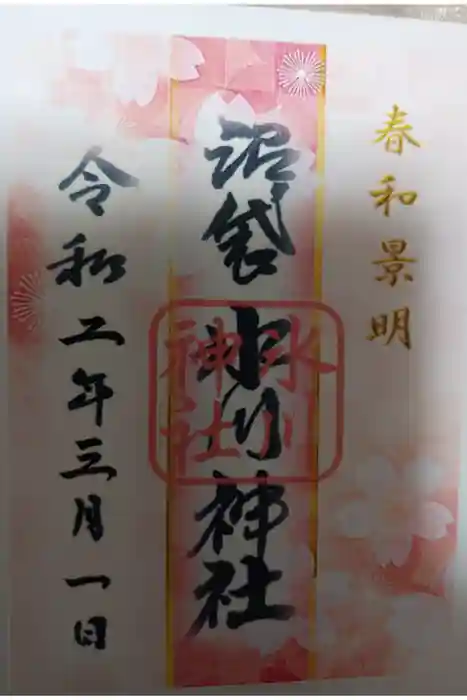 春和景明
沼袋氷川神社
氷川
神社
令和二年三月一日